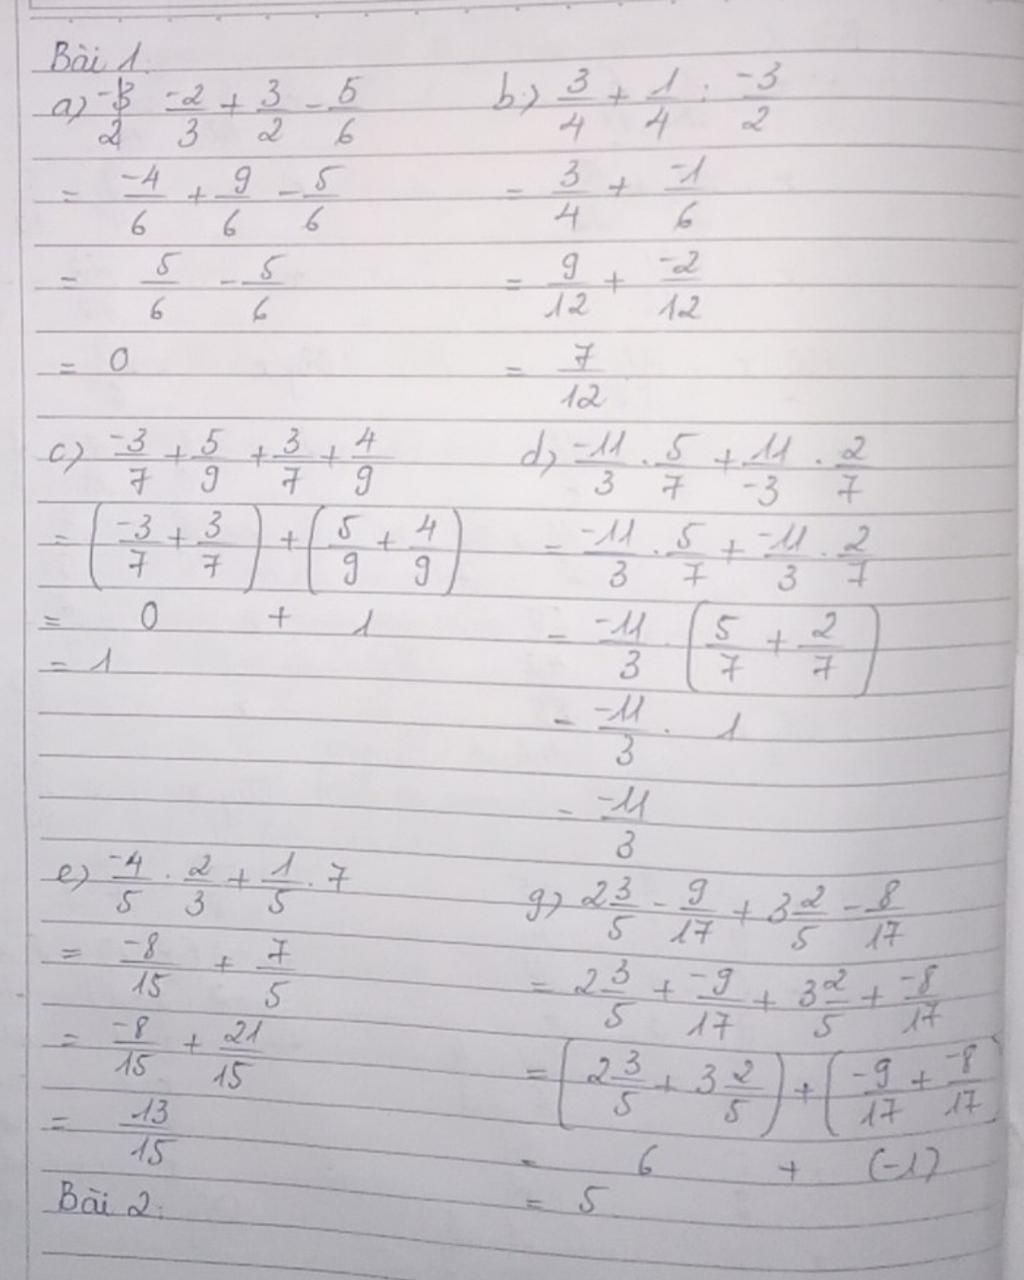 Bài 1.
a) -2/3 + 3/2 - 5/6
= -4/6 + 9/6 - 5/6
= 5/6 - 5/6
= 0
b) 3/4 + 1/4 : -3/2
= 3/4 + -1/6
= 9/12 + -2/12
= 7/12
c) -3/7 + 5/9 + 3/7 + 4/9
= (-3/7 + 3/7) + (5/9 + 4/9)
= 0 + 1
= 1
d) -11/3 . 5/7 + 11/-3 . 2/7
= -11/3 . 5/7 + -11/3 . 2/7
= -11/3 . (5/7 + 2/7)
= -11/3 . 1
= -11/3
e) -4/5 . 2/3 + 1/5 . 7
= -8/15 + 7/5
= -8/15 + 21/15
= 13/15
g) 2 3/5 - 9/17 + 3 2/5 - 8/17
= 2 3/5 + -9/17 + 3 2/5 + -8/17
= (2 3/5 + 3 2/5) + (-9/17 + -8/17)
= 6 + (-1)
= 5
Bài 2: